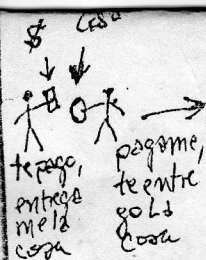 $ COSA
te pago,
entrega
me la
cosa
pagame,
te entre
go la
cosa